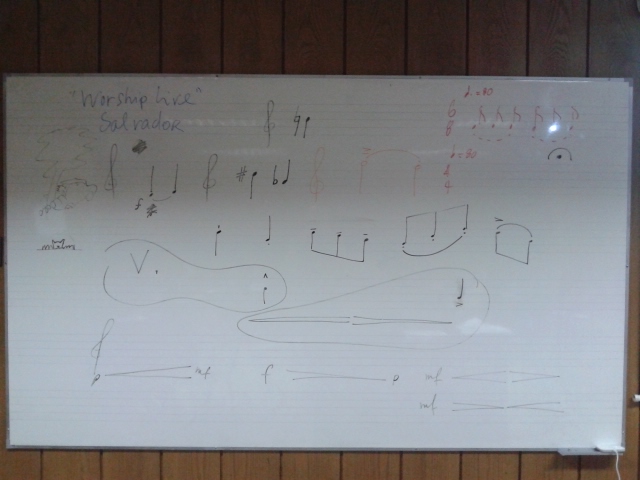 "Worship Live"
Salvador
= 90
= 90
f
V.
p mf f p mf
mf